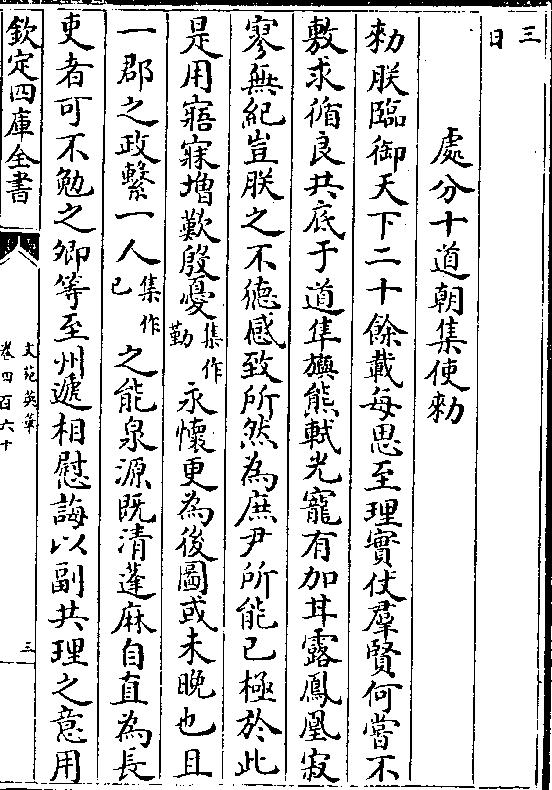 三日
處分十道朝集使勑
勑朕臨御天下二十餘載每思至理實仗羣賢何嘗不
敷求循良共底于道隼旟熊軾光寵有加甘露鳳凰寂
寥無紀豈朕之不德感致所然為庶尹所能已極於此
是用寤寐增歎殷憂集作勤永懷更為後圖或未晚也且
一郡之政繫一人集作已之能泉源既清蓬麻自直為長
吏者可不勉之卿等至州遞相慰誨以副共理之意用
欽定四庫全書
文苑英華
卷四百六十
三